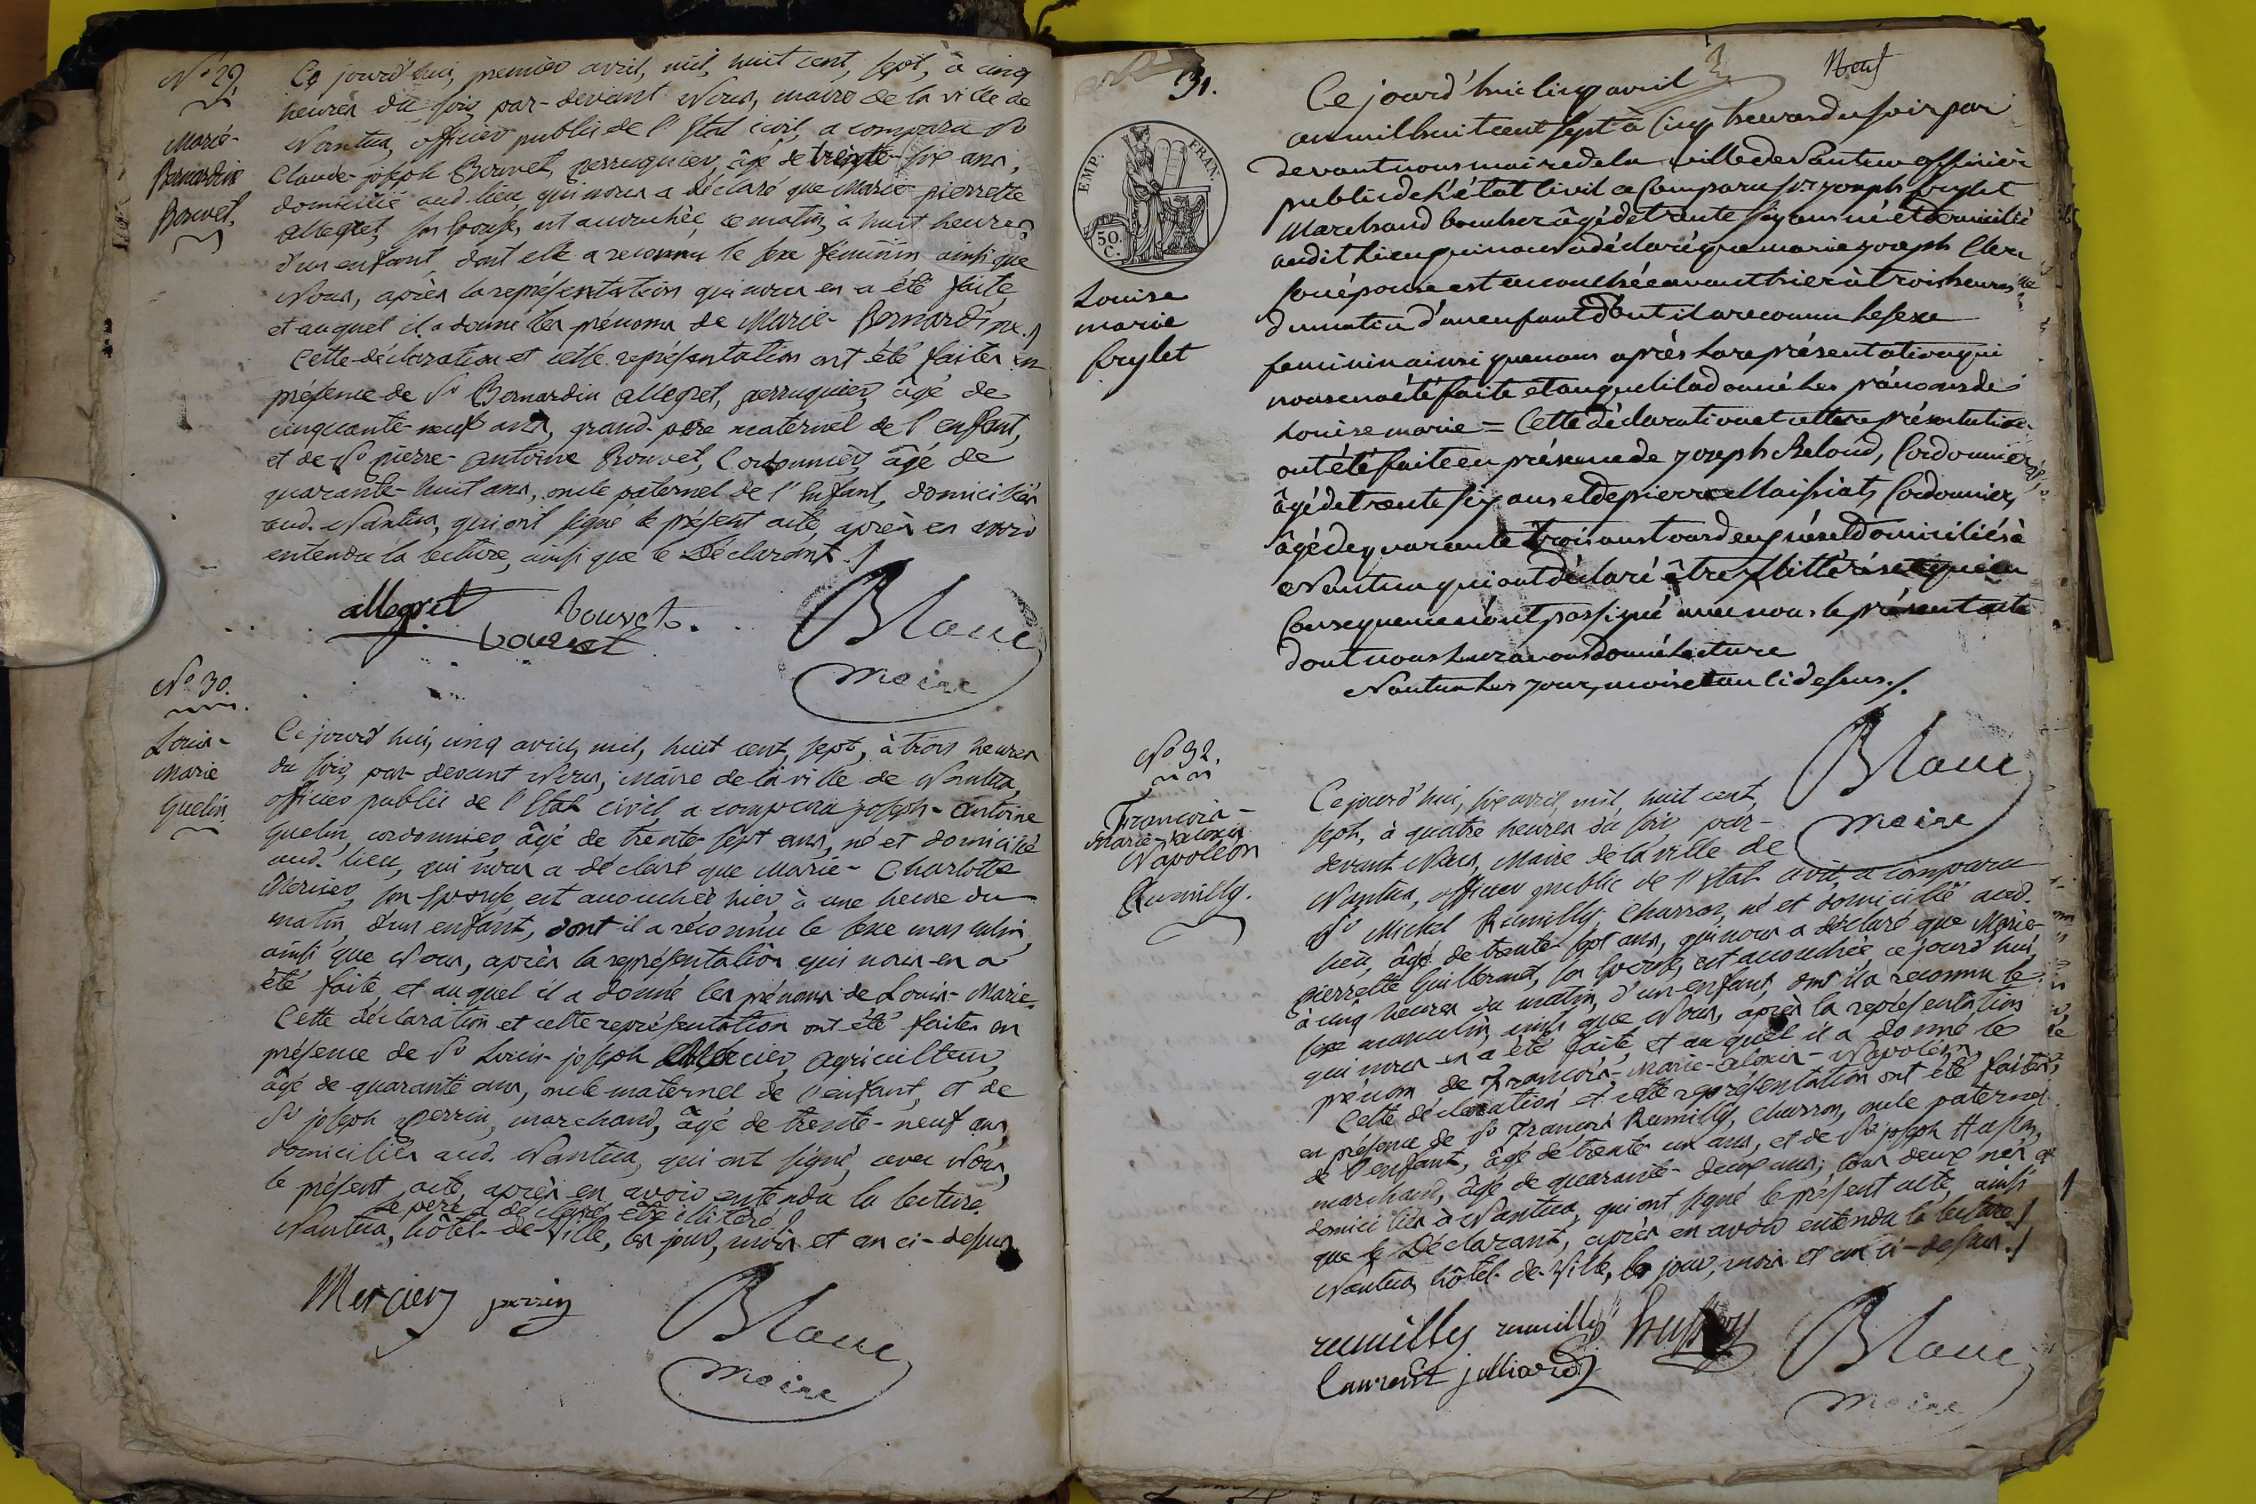 N.º 29.
Marie-
Bernardine
Bouvet.
Ce jourd'hui, premier avril, mil, huit cent, sept, à cinq
heures du soir, par-devant Nous, maire de la ville de
Nantua, officier public de l'Etat civil, a comparu Sr
Claude-joseph Bouvet, perruquier, âgé de trente-six ans,
domicilié aud. lieu, qui nous a déclaré que Marie-pierrette
allegret, son Epouse, est accouchée, ce matin, à huit heures,
d'un enfant, dont elle a reconnu le sexe féminin ainsi que
Nous, après la représentation qui nous en a été faite,
et auquel il a donné les prénoms de Marie-Bernardine./
Cette déclaration et cette représentation ont été faites en
présence de Sr Bernardin allegret, perruquier, âgé de
cinquante-neuf ans, grand-père maternel de l'enfant,
et de Sr pierre-antoine Bouvet, Cordonnier, âgé de
quarante-huit ans, oncle paternel de l'Enfant, domiciliés
aud. Nantua, qui ont signé le présent acte, après en avoir
entendu la lecture, ainsi que le Déclarant./
allegret bouvet. Blanc
bouvet
maire
N.º 30.
Louis-
Marie
Guelin
Ce jourd'hui, cinq avril, mil, huit cent, sept, à trois heures
du soir, par-devant Nous, Maire de la ville de Nantua,
officier public de l'Etat civil, a comparu joseph-antoine
Guelin, cordonnier, âgé de trente-sept ans, né et domicilié
aud. lieu, qui nous a déclaré que Marie-Charlotte
Mercier, son Epouse, est accouchée hier, à une heure du
matin, d'un enfant, dont il a reconnu le sexe masculin,
ainsi que Nous, après la représentation qui nous en a
été faite, et auquel il a donné les prénoms de Louis-Marie.
Cette déclaration et cette représentation ont été faites en
présence de Sr Louis-joseph Mercier, agriculteur,
âgé de quarante ans, oncle maternel de l'enfant, et de
Sr joseph perrin, marchand, âgé de trente-neuf ans,
domiciliés aud. Nantua, qui ont signé, avec Nous,
le présent acte, après en avoir entendu la lecture.
Le père a déclaré être illitéré./
Nantua, hôtel-de-Ville, les jour, mois et an ci-dessus
Mercier perrin Blanc
maire
31.
Neuf
EMP. FRAN.
50. C.
Louise
marie
brylet
Ce jourd'hui cinq avril
an mil huit cent sept à cinq heures du soir par
devant nous maire de la ville de Nantua officier
public de l'état Civil a Comparu Sr joseph brylet
Marchand boucher âgé de trente six ans né et domicilié
audit Lieu qui nous a déclaré que marie joseph Clerc
son épouse est accouchée avant hier à trois heures
du matin d'un enfant dont il a reconnu le sexe
feminin ainsi que nous après la représentation qui
nous en a été faite et auquel il a donné les prénoms de
Louise marie = Cette déclaration et cette représentation
ont été faite en présence de joseph Beloud, Cordonnier
âgé de trente six ans et de pierre Maissiat, Cordonnier,
âgé de quarante trois ans tous deux nés et domiciliés à
Nantua qui ont déclaré être illittérés et qui en
Consequence n'ont pas signé avec nous le présent acte
dont nous leur avons donné lecture
Nantua les jour, mois et an ci dessus./.
Blanc
maire
N.º 32.
François-
Marie-alexis
Napoléon
Rumilly.
Ce jourd'hui, six avril, mil, huit cent,
sept, à quatre heures du soir, par-
devant Nous, Maire de la ville de
Nantua, officier public de l'Etat civil, a comparu
Sr Michel Rumilly, Charron, né et domicilié aud.
lieu, âgé de trente-sept ans, qui nous a déclaré que Marie-
pierrette Guillermet, son Epouse, est accouchée, ce jourd'hui,
à cinq heures du matin, d'un enfant, dont il a reconnu le
sexe masculin, ainsi que Nous, après la représentation
qui nous en a été faite, et auquel il a donné les
prénom de François-Marie-alexis-Napoléon,
Cette déclaration et cette représentation ont été faites,
en présence de Sr François Rumilly, charron, oncle paternel
de l'enfant, âgé de trente un ans, et de Sr joseph Husson,
marchand, âgé de quarante-deux ans; tous deux nés et
domiciliés à Nantua, qui ont signé le présent acte, ainsi
que le Déclarant, après en avoir entendu la lecture./
Nantua, hôtel-de-Ville, les jour, mois et an ci-dessus./
rumilly rumilly husson Blanc
laurent julliard
maire